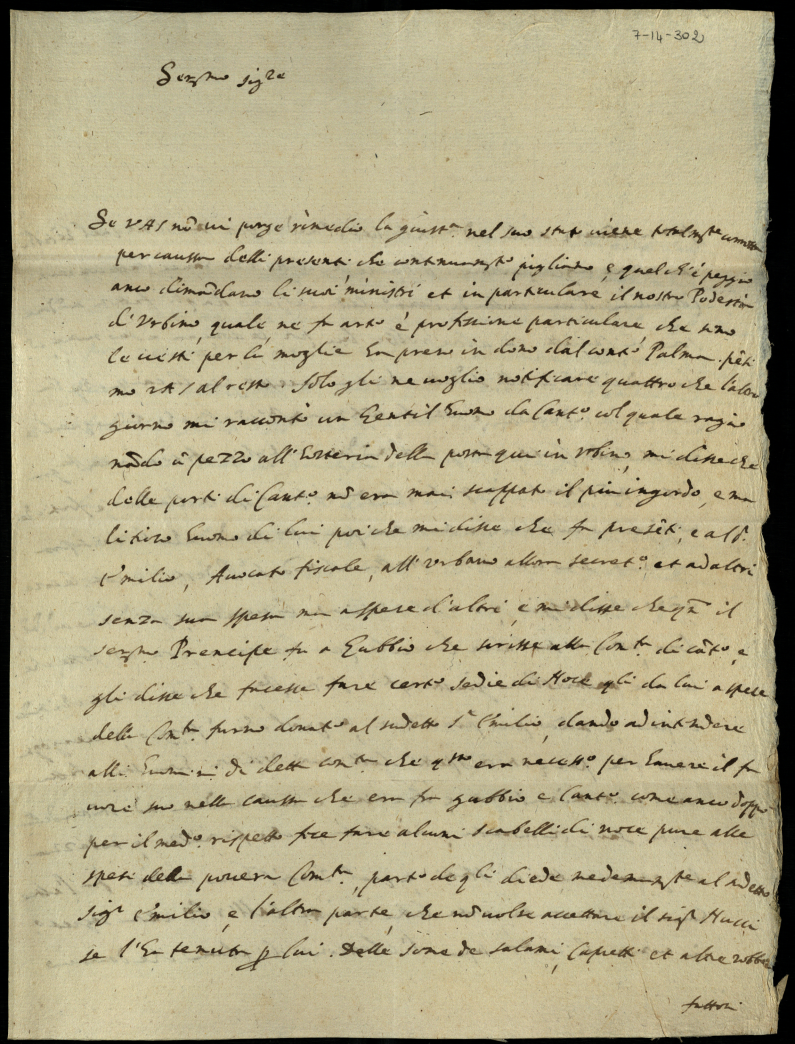 7-14-302
Ser.mo Sig.re
Se VAS nō vi porge rimedio la giust.a nel suo stato viene totalm.te corrotta
per caussa delli presenti che continuam.te pigliano e quel ch'è peggio
anco dimādano li suoi ministri et in particulare il nostro Podestà
d'Urbino, quale ne fa arte è profissione particulare che sino
le vesti per la moglie ha preso in dono dal conte Palma
mo VAS al resto. Solo gli ne voglio notificare quattro che l'altro
giorno mi raccontò un Gentil huomo da Cant.o col quale ragio
nādo à pezzo all'hosteria della posta qui in Urbino, mi disse che
delle parti di Cant.o nō era mai scappato il più ingordo, e ma
litioso huomo di lui poi che mi disse che fa presēti, e al S.r
Emilio, Avocato fiscale, all'Urbano allora secret.o et ad altri
senza sua spesa ma a spese d'altri, e mi disse che qn̄ il
ser.mo Prencipe fu a Gubbio che scrisse alla Com.tà di cāto, e
gli disse che facesse fare certe sedie di Noce q.li da lui a spese
della Com.tà furno donate al sudetto S.r Emilio, dando ad intendere
alli huomini di detta com.tà che q.sto era necess.o per havere il fa
vore suo nella caussa che era fra gubbio e Cant.o come anco doppo
per il med.o rispetto fece fare alcuni scabelli di noce pure alle
spese della povera Com.tà, parte de q.li diede medemam.te al sudetto
sig.r Emilio, e l'altra parte, che nō volse accettare il sig.r Nucci
se l'ha tenuta p lui. Delle some de salami, Capretti et altre robbe
fattori